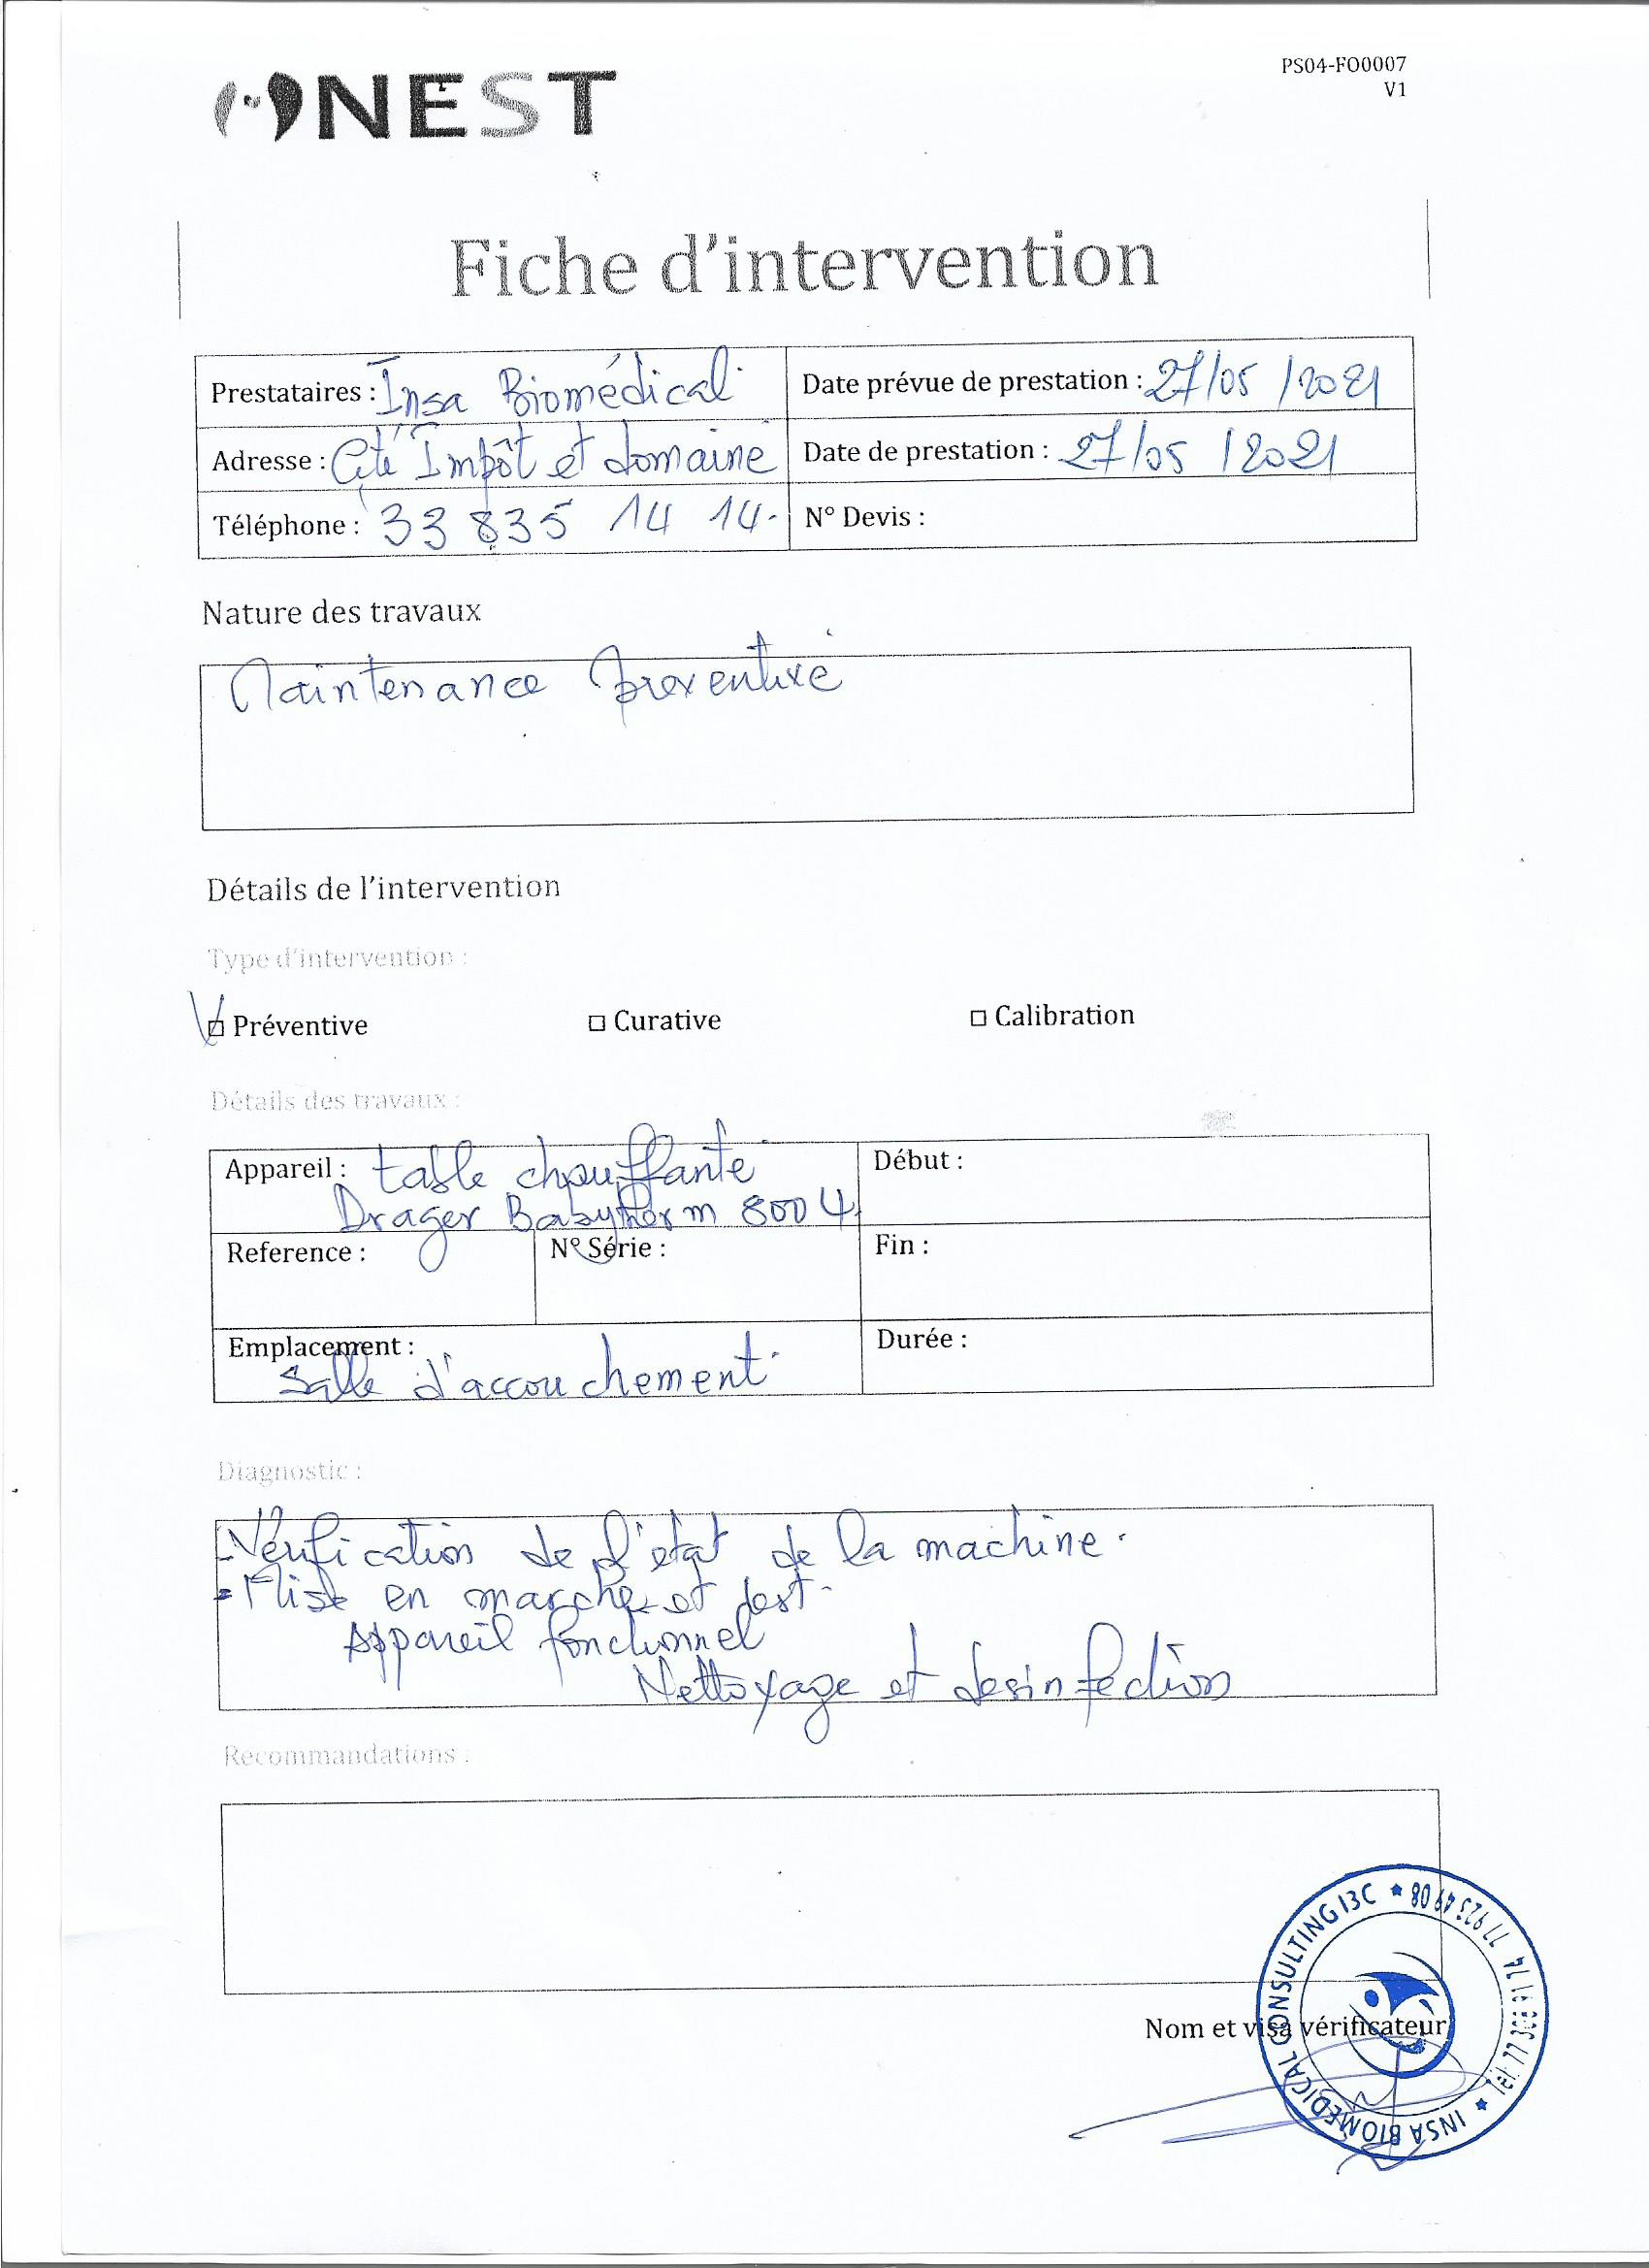 NEST
PS04-FO0007
V1
Fiche d'intervention
Prestataires : Insa Biomédical
Date prévue de prestation : 27/05/2021
Adresse : Cité Impôt et domaine
Date de prestation : 27/05/2021
Téléphone : 33 835 14 14
N° Devis :
Nature des travaux
Maintenance preventive
Détails de l'intervention
Type d'intervention :
Préventive
Curative
Calibration
Détails des travaux :
Appareil : table chauffante
Drager Babytherm 8004
Début :
Reference :
N° Série :
Fin :
Emplacement :
Salle d'accouchement
Durée :
Diagnostic :
- Vérification de l'état de la machine.
- Mise en marche et test.
Appareil fonctionnel
Nettoyage et desinfection
Recommandations :
Nom et visa vérificateur
INSA BIOMEDICAL CONSULTING I3C
77 923 49 08